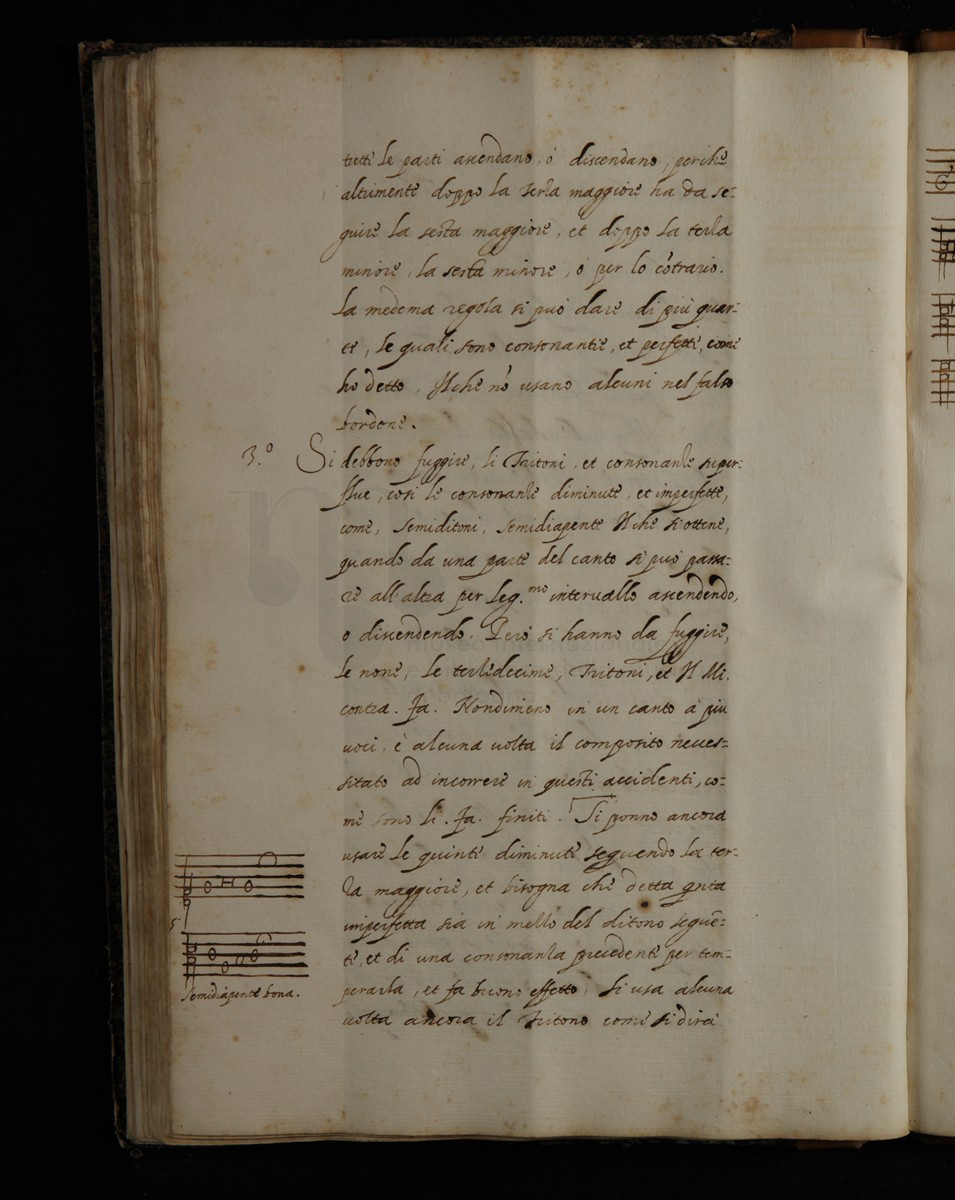 tutte le parti ascendano, ò discendano, perche
altrimente doppo la terza maggiore ha da se-
guire la sesta maggiore, et doppo la terza
minore, la sesta minore, ò per lo cōtrario.
La medema regola si può dare di più quar-
te, le quali sono consonantie, et perfette, come
ho detto, Ilche nō usano alcuni nel falso
bordone.
3.º Si debbono fuggire, li Tritoni, et consonanze super-
flue, cosi le consonanze diminute, et imperfette,
come, semiditoni, semidiapente Il che si ottene,
quando da una parte del canto si può passa-
re all'altra per leg.mo interuallo ascendendo,
o discendendo. Però si hanno da fuggire,
le none, le terzedecime, Tritoni, et Il Mi.
contra. Fa. Nondimeno in un canto à piu
uoci, è alcuna uolta il composito neces-
sitato ad incorrere in questi accidenti, co-
me sono li. Fa. finiti. Si ponno ancora
usare le quinte diminute seguendo la ter-
za maggiore, et bisogna che detta qnta
imperfetta sia in mezzo del ditono seguē-
te, et di una consonanza precedente per tem-
perarla, et fa buono effetto, si usa alcuna
uolta ancora il Tritono come si dirà
5
Semidiapente bona.